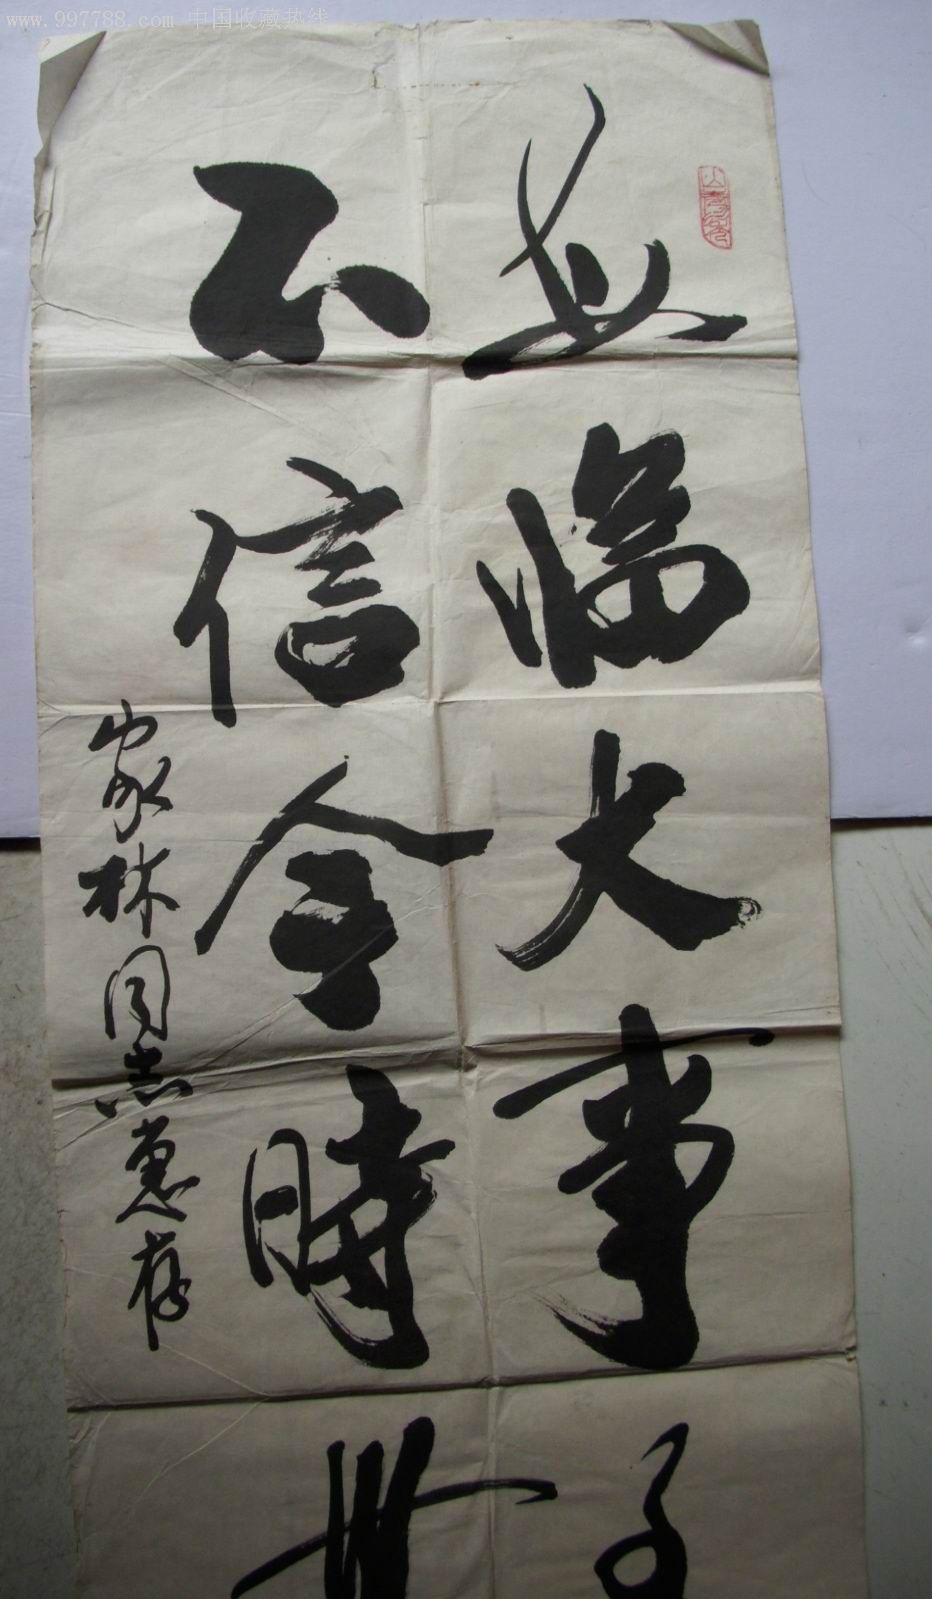 www.997788.com 中国收藏热线
每临大事
不信今時
家林同志惠存